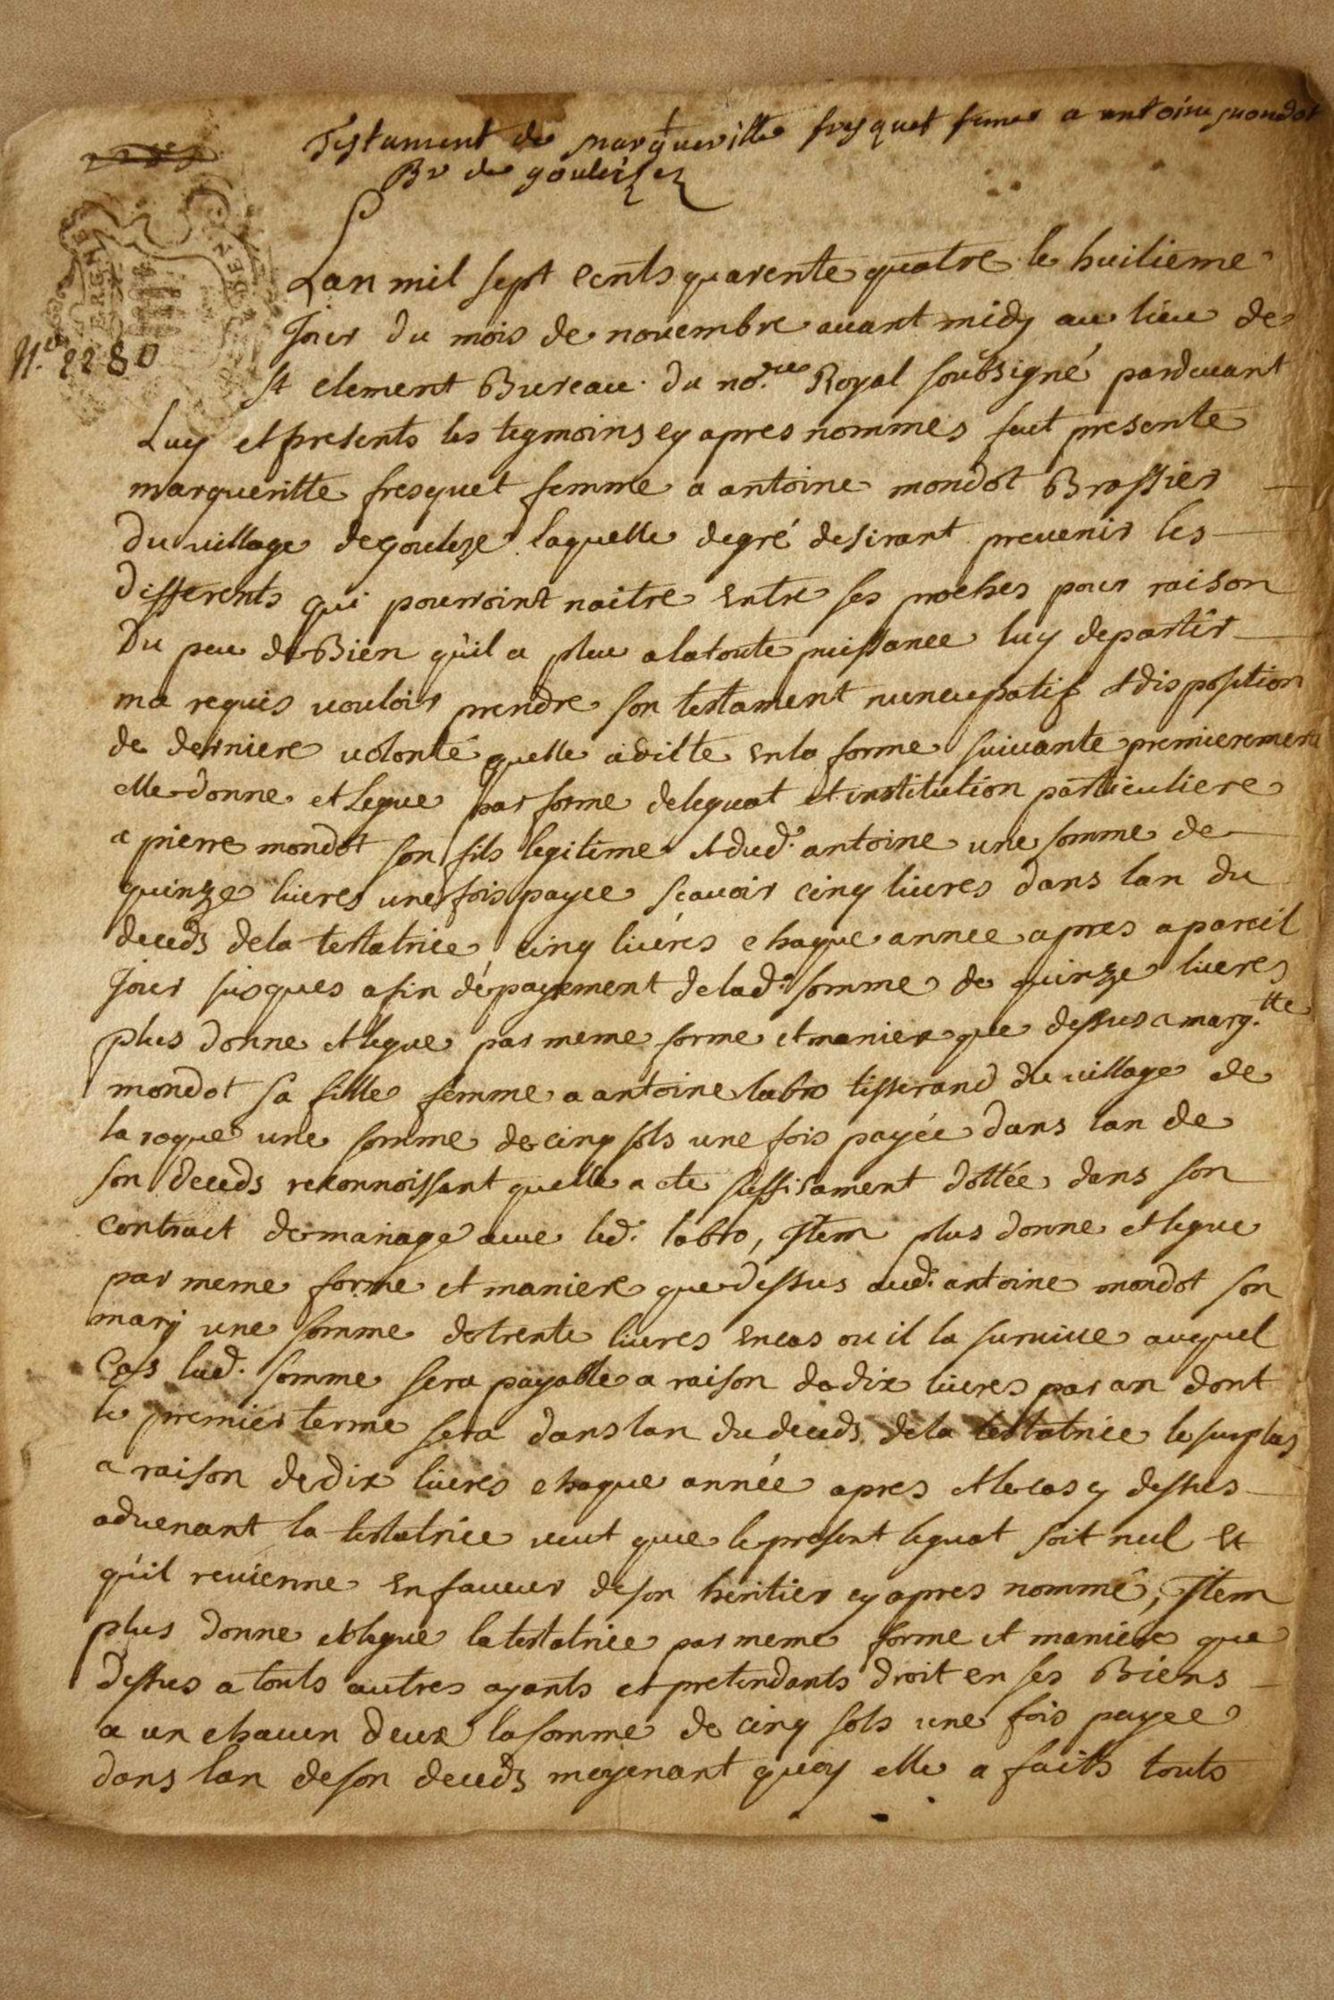 Testament de margueritte fresquet femme a antoine mondot
Br de goulèze
Lan mil sept cents quarente quatre le huitieme
Jour du mois de novembre avant midy au lieu de
N.° 2280
st clement Bureau du no.re Royal soubsigné pardevant
Luy et presents les tesmoins cy apres nommes fut presente
margueritte fresquet femme a antoine mondot Brassier
du village de gouleze laquelle degré desirant prevenir les
differents qui pourroint naitre entre ses proches pour raison
Du peu de Bien quil a pleu a latoute puissance luy departir
ma requis vouloir prendre son testament nuncupatif et disposition
de derniere volonté quelle a ditte en la forme suivante premierement
elle donne et legue par forme deleguat et institution particuliere
a pierre mondot son fils legitime et dud. antoine une somme de
quinze livres une fois payee scavoir cinq livres dans lan du
deceds dela testatrice cinq livres chaque annee apres a pareil
Jour jusques a fin dépayement de lad. somme de quinze livres
plus donne et legue par meme forme et maniere que dessus a marg.tte
mondot sa fille femme a antoine labro tisserand du village de
la roque une somme de cinq sols une fois payée dans lan de
son deceds reconnoissant quelle a ete suffisament dottée dans son
contract de mariage avec led. labro, Item plus donne et legue
par meme forme et maniere que dessus aud. antoine mondot son
mary une somme de trente livres en cas ou il la survive auquel
Cas lad. somme sera payable a raison de dix livres par an dont
le premier terme sera dans lan du deceds de la testatrice le surplus
a raison de dix livres chaque année apres et le cas cy dessus
advenant la testatrice veut que le present leguat soit nul Et
qu'il revienne en faveur de son heritier cy apres nommé, Item
plus donne et legue la testatrice par meme forme et maniere que
dessus a touts autres ayants et pretendants droit en ses Biens
a un chacun deux la somme de cinq sols une fois payee
dans lan de son deceds moyenant quoy elle a faits touts